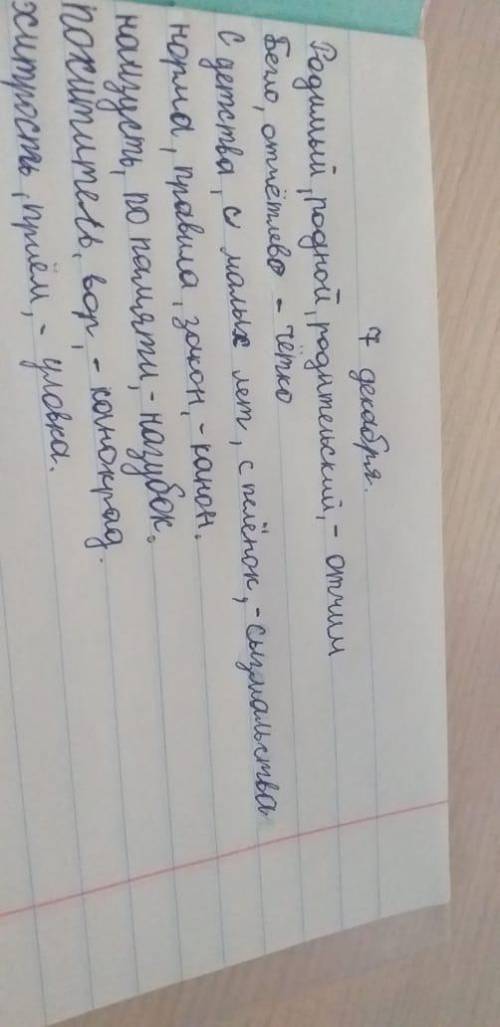 7 декабря.
Родимый, родной, родительский, - отчим
Бегло, отчётлево - чётко
С детства, с малых лет, с пелёнок, - сызмальства
норма, правила, закон, - канон.
наизусть, по памяти, - назубок.
похититель, вор, - конокрад.
хитрость, приём, - уловка.